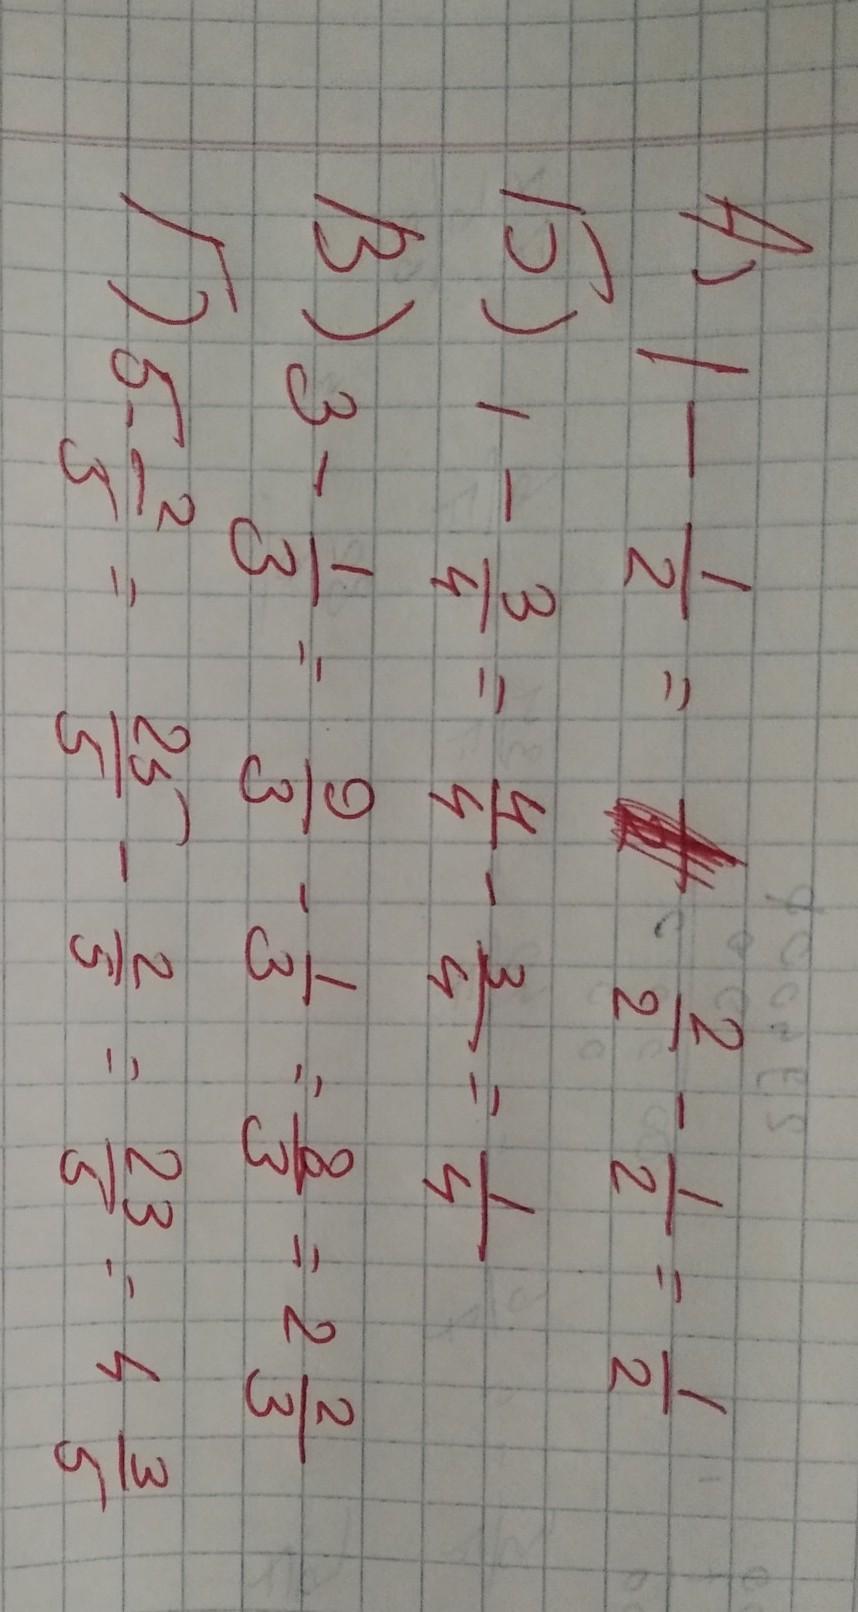 А) 1 - 1/2 = 2/2 - 1/2 = 1/2
Б) 1 - 3/4 = 4/4 - 3/4 = 1/4
В) 3 - 1/3 = 9/3 - 1/3 = 8/3 = 2 2/3
Г) 5 - 2/5 = 25/5 - 2/5 = 23/5 = 4 3/5